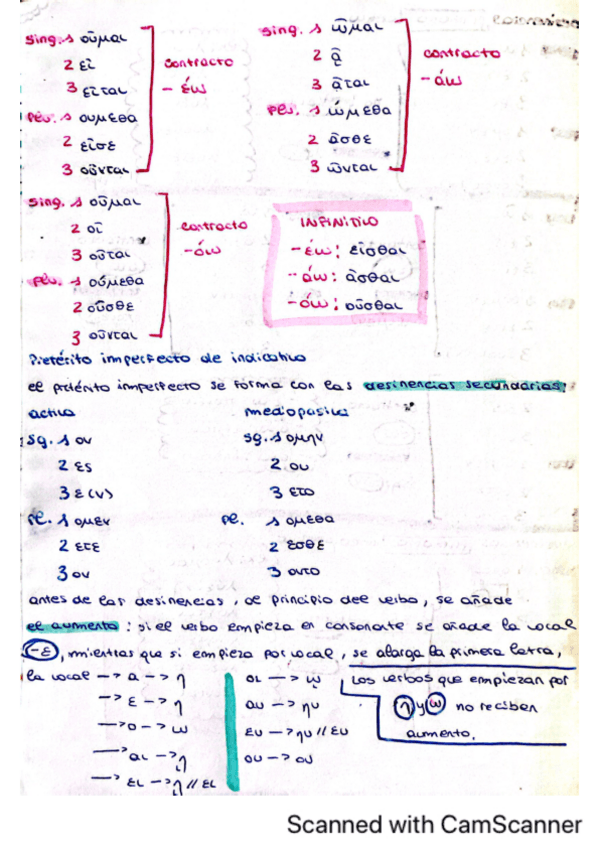 sing. 1 οῦμαι
2 εῖ
3 εῖται
plu. 1 ουμεθα
2 εῖσε
3 οῦνται
contracto
- έω
sing. 1 ῶμαι
2 ᾷ
3 ᾶται
plu. 1 ώμεθα
2 ᾶσθε
3 ῶνται
contracto
- άω
sing. 1 οῦμαι
2 οῖ
3 οῦται
plu. 1 ούμεθα
2 οῦσθε
3 οῦνται
contracto
- όω
INFINITIVO
- έω: εῖσθαι
- άω: ᾶσθαι
- όω: οῦσθαι
Pretérito imperfecto de indicativo
el pretérito imperfecto se forma con las desinencias secundarias:
activa
sg. 1 ον
2 ες
3 ε(ν)
pl. 1 ομεν
2 ετε
3 ον
mediopasiva
sg. 1 ομην
2 ου
3 ετο
pl. 1 ομεθα
2 εσθε
3 οντο
antes de las desinencias, al principio del verbo, se añade
el aumento: si el verbo empieza en consonante se añade la vocal
(-ε), mientras que si empieza por vocal, se alarga la primera letra,
la vocal -> α -> η
-> ε -> η
-> ο -> ω
-> αι -> ῃ
-> ει -> ῃ // ει
οι -> ῳ
αυ -> ηυ
ευ -> ηυ // ευ
ου -> ου
Los verbos que empiezan por
η y ω no reciben
aumento.
Scanned with CamScanner